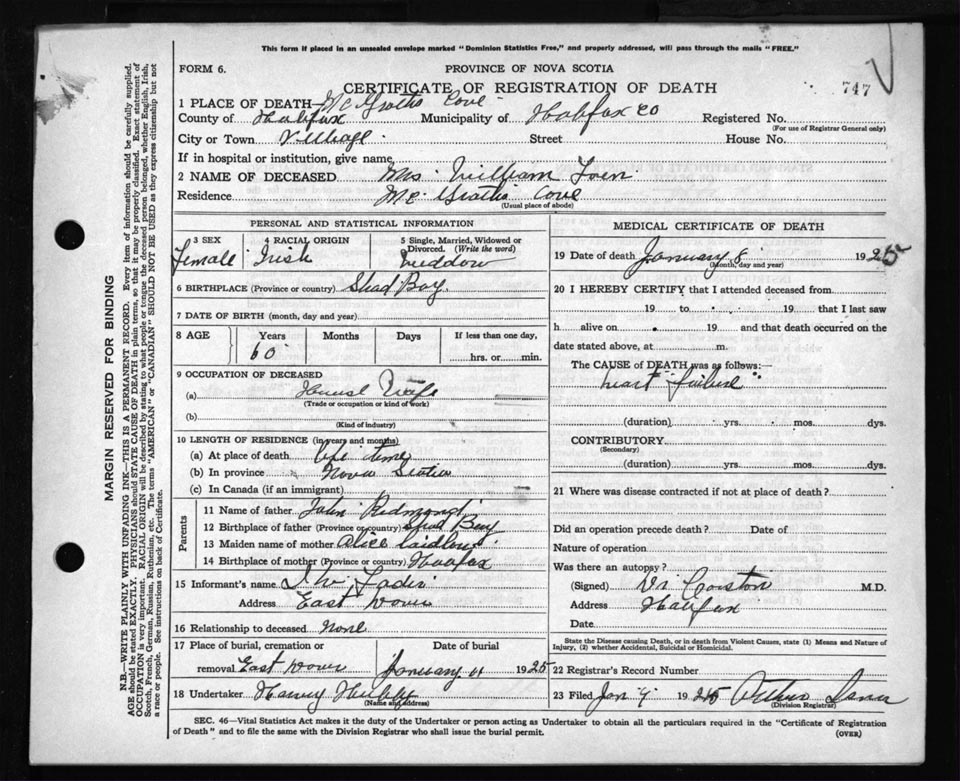 This form if placed in an unsealed envelope marked "Dominion Statistics Free," and properly addressed, will pass through the mails "FREE."
FORM 6.
PROVINCE OF NOVA SCOTIA
CERTIFICATE OF REGISTRATION OF DEATH
747
1 PLACE OF DEATH Mc Graths Cove
County of Halifax Municipality of Halifax Co Registered No.
(For use of Registrar General only)
City or Town Village Street House No.
If in hospital or institution, give name
2 NAME OF DECEASED Mrs William
Residence Mc Graths Cove
(Usual place of abode)
PERSONAL AND STATISTICAL INFORMATION
3 SEX 4 RACIAL ORIGIN 5 Single, Married, Widowed or Divorced. (Write the word)
Female Irish Widdow
6 BIRTHPLACE (Province or country) Shad Bay
7 DATE OF BIRTH (month, day and year)
8 AGE Years Months Days If less than one day,
60 hrs. or min.
9 OCCUPATION OF DECEASED
(a) House Wife
(Trade or occupation or kind of work)
(b)
(Kind of industry)
10 LENGTH OF RESIDENCE (in years and months)
(a) At place of death life time
(b) In province Nova Scotia
(c) In Canada (if an immigrant)
Parents
11 Name of father John Redmond
12 Birthplace of father (Province or country) Shad Bay
13 Maiden name of mother Alice laidlow
14 Birthplace of mother (Province or country) Halifax
15 Informant's name
Address East Dover
16 Relationship to deceased None
17 Place of burial, cremation or removal East Dover Date of burial January 11 1925
18 Undertaker Harvey Hubley
(Name and address)
MEDICAL CERTIFICATE OF DEATH
19 Date of death January 8 1925
(Month, day and year)
20 I HEREBY CERTIFY that I attended deceased from
19 to 19 that I last saw
h alive on 19 and that death occurred on the
date stated above, at m.
The CAUSE of DEATH was as follows:—
heart failure
(duration) yrs. mos. dys.
CONTRIBUTORY
(Secondary)
(duration) yrs. mos. dys.
21 Where was disease contracted if not at place of death?
Did an operation precede death? Date of
Nature of operation
Was there an autopsy?
(Signed) Dr Corston M.D.
Address Halifax
Date
State the Disease causing Death, or in death from Violent Causes, state (1) Means and Nature of
Injury, (2) whether Accidental, Suicidal or Homicidal.
22 Registrar's Record Number
23 Filed Jan 9 1925 Arthur
(Division Registrar)
SEC. 46—Vital Statistics Act makes it the duty of the Undertaker or person acting as Undertaker to obtain all the particulars required in the "Certificate of Registration
of Death" and to file the same with the Division Registrar who shall issue the burial permit.
(OVER)
MARGIN RESERVED FOR BINDING
N.B.—WRITE PLAINLY WITH UNFADING INK—THIS IS A PERMANENT RECORD. Every item of information should be carefully supplied.
AGE should be stated EXACTLY. PHYSICIANS should STATE CAUSE OF DEATH in plain terms, so that it may be properly classified. Exact statement of
OCCUPATION is very important. RACIAL ORIGIN will be described by stating to what people or tongue the deceased person belonged, whether English, Irish,
Scotch, French, German, Russian, Ruthenian, etc. The terms "AMERICAN" or "CANADIAN" SHOULD NOT BE USED as they express citizenship but not
a race or people. See instructions on back of Certificate.